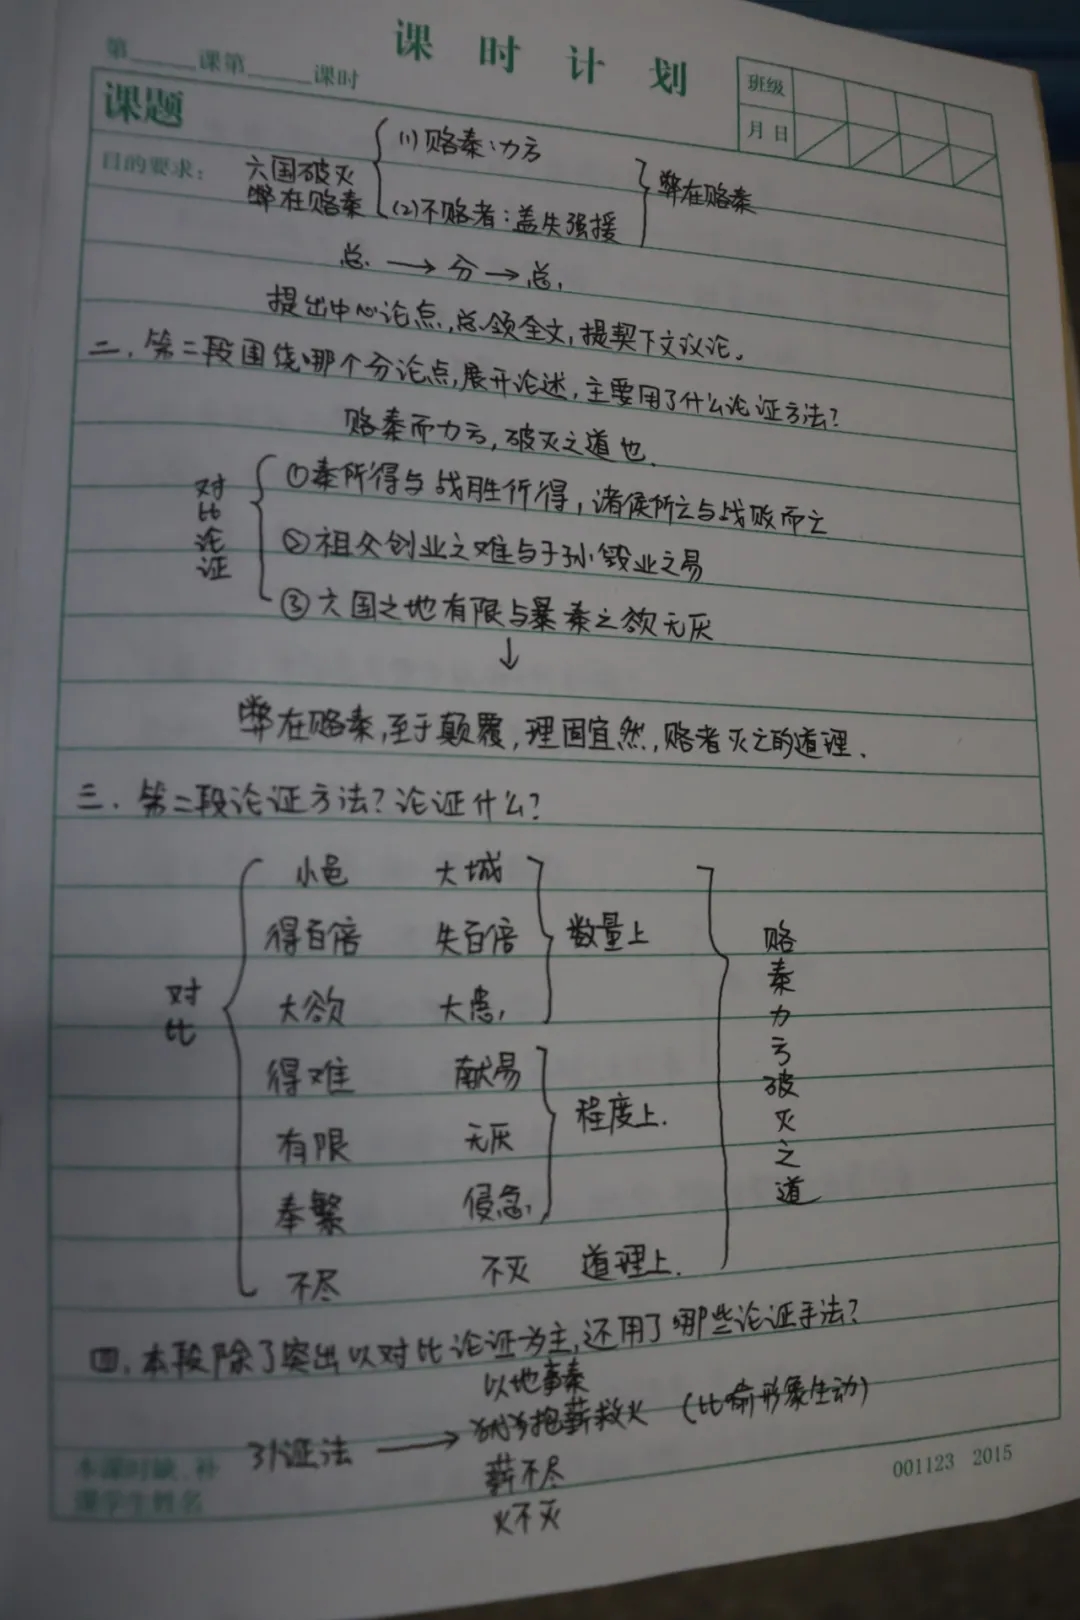 课时计划
第____课第____课时
班级
月日
课题
目的要求：
六国破灭
弊在赂秦
(1)赂秦：力亏
(2)不赂者：盖失强援
弊在赂秦
总 → 分 → 总.
提出中心论点,总领全文,提契下文议论。
二.第二段围绕哪个分论点,展开论述,主要用了什么论证方法?
赂秦而力亏,破灭之道也.
对比论证
①秦所得与战胜所得,诸侯所亡与战败而亡
②祖父创业之难与子孙毁业之易
③六国之地有限与暴秦之欲无厌
↓
弊在赂秦,至于颠覆,理固宜然,赂者灭亡的道理.
三.第二段论证方法?论证什么?
对比
小邑 大城
得百倍 失百倍 数量上
大欲 大患,
得难 献易
有限 无厌 程度上.
奉繁 侵急,
不尽 不灭 道理上.
赂秦力亏破灭之道
四.本段除了突出以对比论证为主,还用了哪些论证手法?
以地事秦
引证法 → 犹抱薪救火 (比喻形象生动)
薪不尽
火不灭
本课时缺、补
课学生姓名
001123 2015